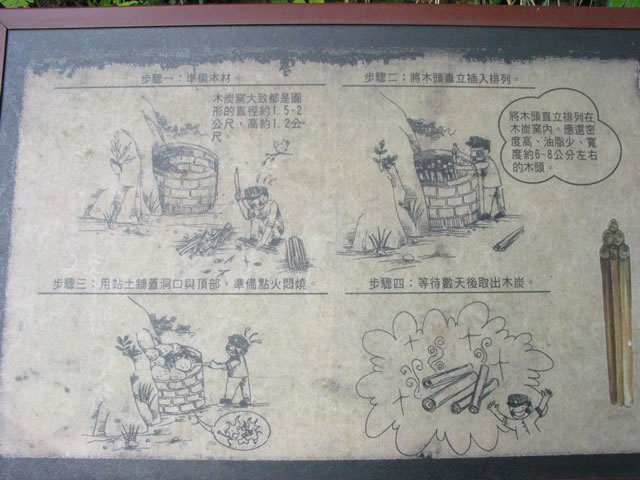 步驟一：準備木材.
木炭窯大致都是圓
形的直徑約1.5-2
公尺，高約1.2公
尺。
步驟二：將木頭直立插入排列。
將木頭直立排列在
木炭窯內。應選密
度高、油脂少、寬
度約6-8公分左右
的木頭。
步驟三：用黏土鋪蓋洞口與頂部，準備點火悶燒。
步驟四：等待數天後取出木炭。